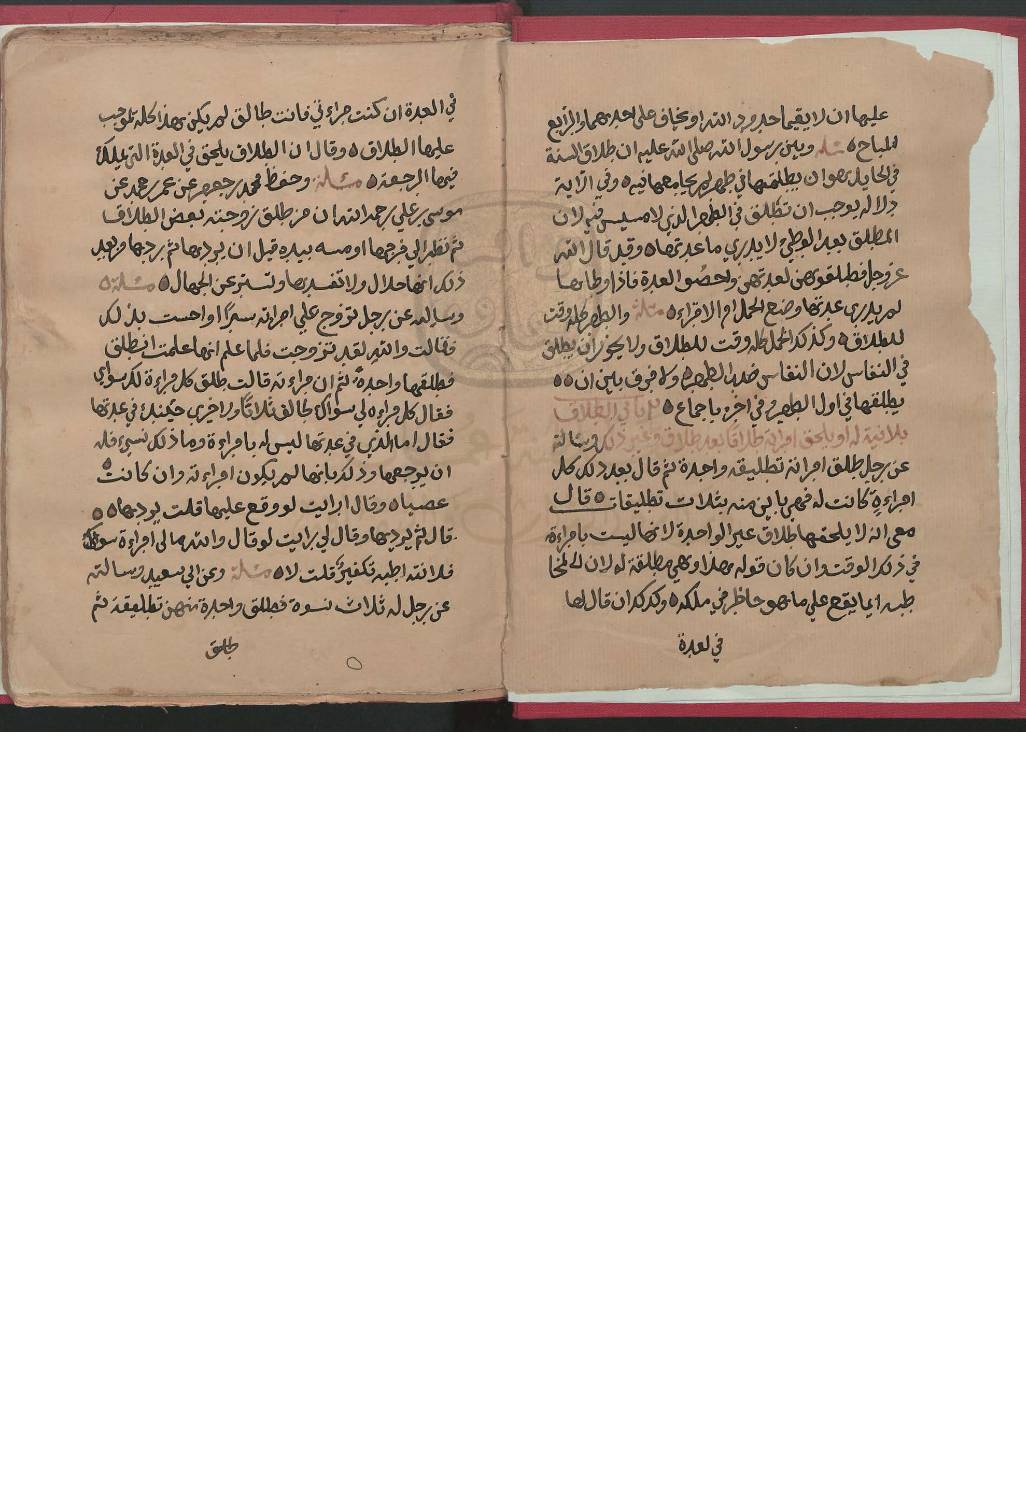 عليها ان لا يقيما حدود الله او يخاف على احدهما والرابع
المباح ٥ مسئلة وبين رسول الله صلى الله عليه ان طلاق السنة
في الحايل هو ان يطلقها في طهر لم يجامعها فيه ٥ وفي الآية
دلاله يوجب ان تطلق في الطهر الذي لا مسيس فيه لان
المطلق بعد الوطي لا يدري ما عدتها ٥ وقد قال الله
عز وجل فطلقوهن لعدتهن واحصوا العدة فاذا وطاها
لم يدري عدتها وضع الحمل ام الاقراء ٥ مسئلة والطهر كله وقت
للطلاق ٥ وكذلك الحمل كله وقت للطلاق ولا يجوز ان يطلق
في النفاس لان النفاس ضد الطهر ٥ ولا فرق بين ان ٥٥
يطلقها في اول الطهر وفي اخره باجماع ٥ باب في الطلاق
بلا نية له او يلحق امراته طلاقا بعد طلاق وغير ذلك وسالته
عن رجل طلق امراته تطليقه واحدة ثم قال بعد ذلك كل
امراءة كانت له فهي باين منه بثلاث تطليقات ٥ قال
معي انه لا يلحقها طلاق غير الواحدة لانها ليست بامراءة
في ذلك الوقت وان كان قوله بهذا وهي مطلقة له لان المخا
طبه انما يقع على ما هو حاظر في ملكه ٥ وكذلك ان قال لها
في العدة
في العدة ان كنت مراءتي فانت طالق لم يكن بهذا كله توجب
عليها الطلاق ٥ وقال ان الطلاق يلحق في العدة التي يملك
فيها الرجعة ٥ مسئلة وحفظ محمد بن جعفر عن عمر بن محمد عن
موسى بن علي رحمه الله ان من طلق زوجته بعض الطلاق
ثم نظر الى فرجها او مسه بيده قبل ان يردها ثم ردها من بعد
ذلك انها حلال ولا تفسد بها وتستتر عن الجهال ٥ مسئلة ٥
وسالته عن رجل تزوج على امراته سرا واحست بذلك
فقالت والله لقد تزوجت فلما علم انها علمت انطلق
فطلقها واحدة ثم ان مراءته قالت طلق كل مراءة لك سواي
فقال كل مراءه لي سواك طالق ثلاثا والاخرى حينئذ في عدتها
فقال اما الذي في عدتها ليس له بامراءة وما ذلك بشيء فله
ان يرجعها وذلك بانها لم يكون امراءته وان كانت ٥
عصيا ٥ وقال ارايت لو وقع عليها قلت يردها ٥٥
قال ثم يردها وقال لي رايت لو قال والله مالي امراءة سواك
فلانة اعليه تكفير قلت لا ٥ مسئلة وعن ابي سعيد وسالته
عن رجل له ثلاث نسوة فطلق واحدة منهن تطليقة ثم
طلق